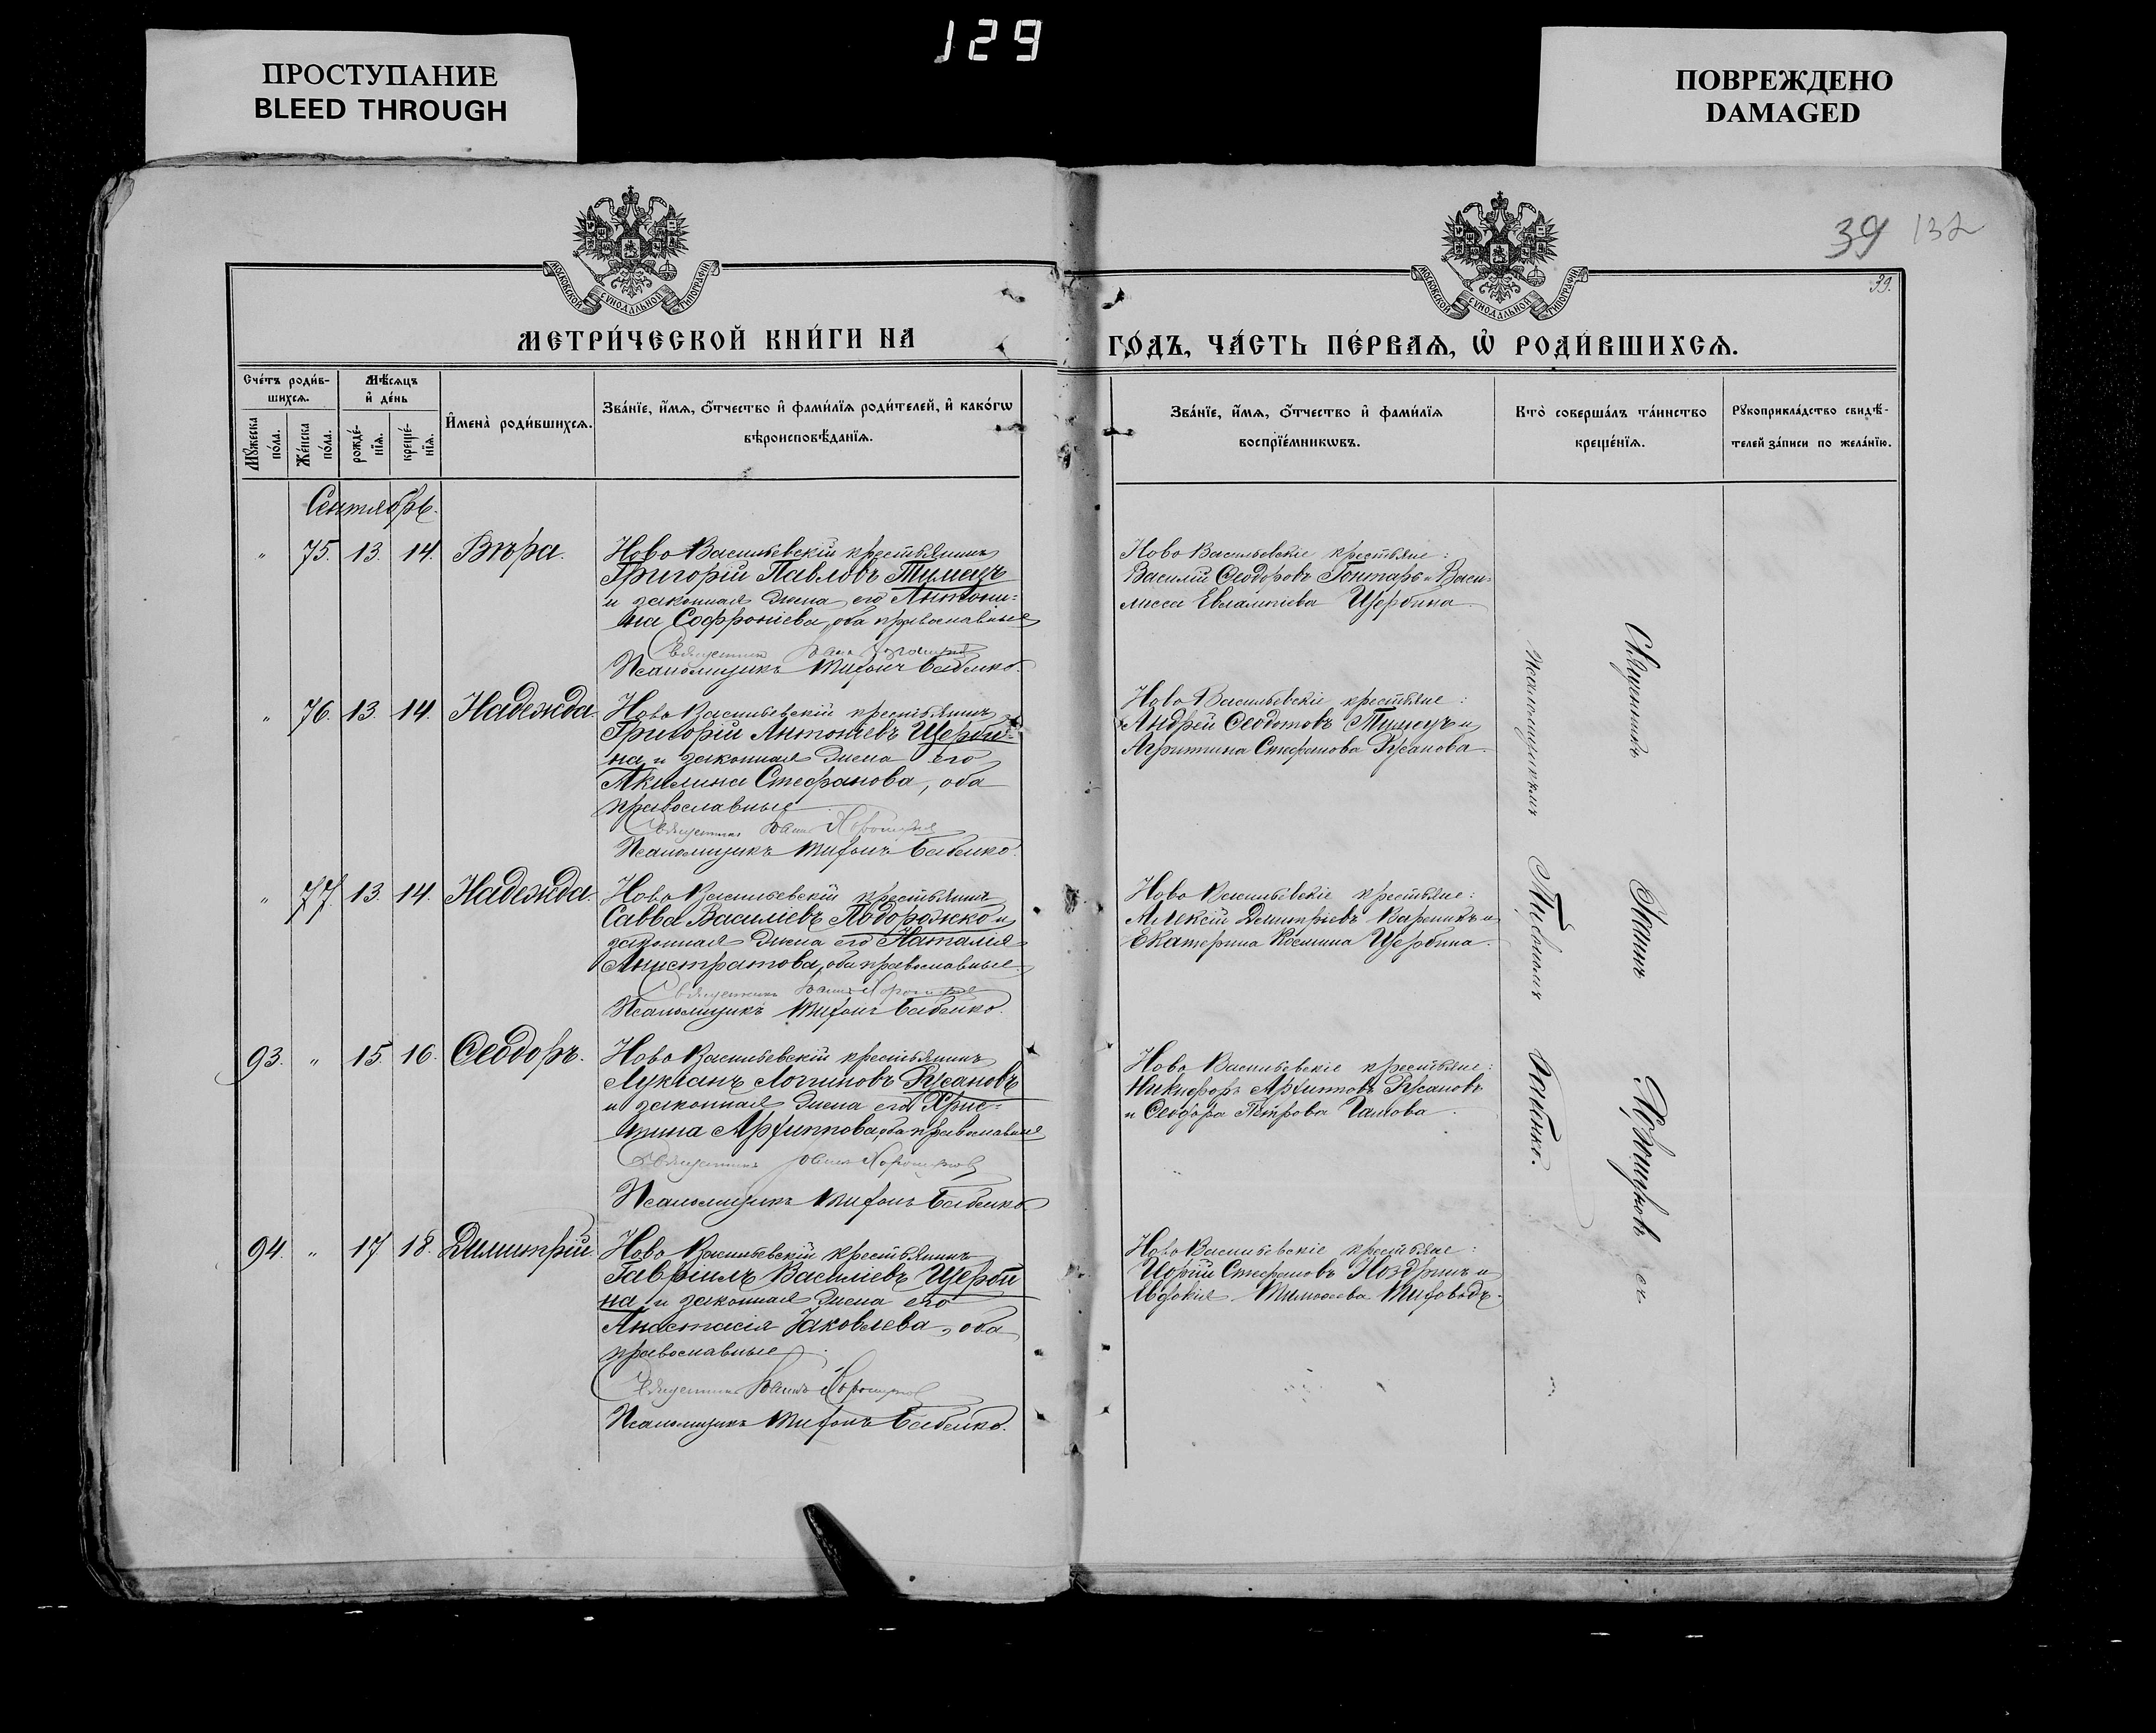 129
ПРОСТУПАНИЕ
BLEED THROUGH
ПОВРЕЖДЕНО
DAMAGED
39 132
39.
МОСКОВСКОЙ СѴНОДАЛЬНОЙ ТИПОГРАФІИ
МОСКОВСКОЙ СѴНОДАЛЬНОЙ ТИПОГРАФІИ
МЕТРИ́ЧЕСКОЙ КНИ́ГИ НА
ГО́ДЪ, ЧА́СТЬ ПЕ́РВАѦ, Ѽ РОДИ́ВШИХСѦ.
Сче́тъ роди́в-
шихсѧ.
Мꙋжеска по́ла.
Же́нска по́ла.
Мѣ́сѧцъ
и҆ де́нь
рожде́-
нїѧ.
креще́-
нїѧ.
И҆мена̀ роди́вшихсѧ.
Зва́нїе, и҆́мѧ, ѻ҆́тчество и҆ фами́лїѧ роди́телей, и҆ како́гѡ
вѣроисповѣ́данїѧ.
Зва́нїе, и҆́мѧ, ѻ҆́тчество и҆ фами́лїѧ
воспрїе́мникѡвъ.
Кто̀ соверша́лъ та́инство
креще́нїѧ.
Рꙋкоприкла́дство свидѣ́-
телей за́писи по жела́нїю.
Сентябрь.
" 75. 13. 14. Вѣра.
Ново Васильевскій крестьянинъ
Григорій Павловъ Тимецъ
и законная жена его Антони-
на Софроніева, оба православные
Священникъ Іоаннъ
Псаломщикъ Тихонъ Бабенко.
Ново Васильевскіе крестьяне:
Василій Ѳеодоровъ Гонтарь и Васи-
лисса Евлампіева Щербина.
" 76. 13. 14. Надежда.
Ново Васильевскій крестьянинъ
Григорій Антоніевъ Щерби-
на и законная жена его
Акилина Стефанова, оба
православные
Священникъ Іоаннъ
Псаломщикъ Тихонъ Бабенко.
Ново Васильевскіе крестьяне:
Андрей Ѳеодотовъ Тимецъ и
Агрипина Стефанова Русанова.
" 77. 13. 14. Надежда.
Ново Васильевскій крестьянинъ
Савва Василіевъ Подорожко и
законная жена его Наталія
Анистратова, оба православные.
Священникъ Іоаннъ
Псаломщикъ Тихонъ Бабенко.
Ново Васильевскіе крестьяне:
Алексій Димитріевъ Вареникъ и
Екатерина Космина Щербина.
93. " 15. 16. Ѳеодоръ.
Ново Васильевскій крестьянинъ
Лукіанъ Логиновъ Русановъ
и законная жена его Хрис-
тина Архиппова, оба православные
Священникъ Іоаннъ
Псаломщикъ Тихонъ Бабенко.
Ново Васильевскіе крестьяне:
Никифоръ Архипповъ Русановъ
и Ѳеодора Петрова
94. " 17 18. Димитрій.
Ново Васильевскій крестьянинъ
Гавріилъ Василіевъ Щерби
на и законная жена его
Анастасія Іаковлева, оба
православные.
Священникъ Іоаннъ
Псаломщикъ Тихонъ Бабенко.
Ново Васильевскіе крестьяне:
Стефановъ Ноздринъ и
Евдокія Тимоѳеева
Священникъ Іоаннъ съ
псаломщикомъ Тихономъ Бабенко.